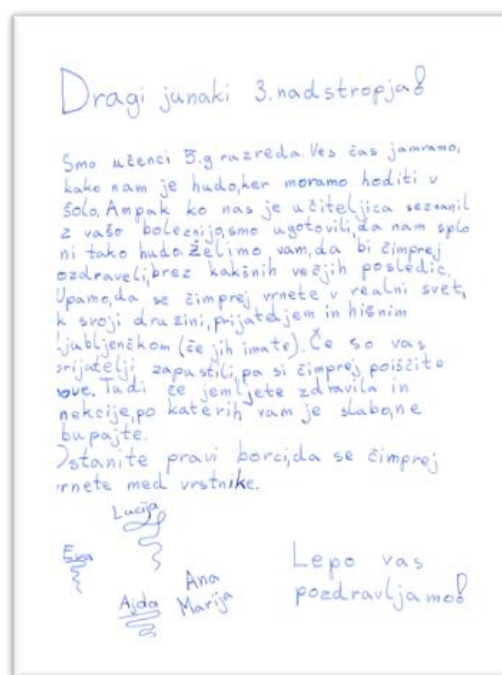 Dragi junaki 3. nadstropja!
Smo učenci 5.g razreda. Ves čas jamramo,
kako nam je hudo, ker moramo hoditi v
šolo. Ampak ko nas je učiteljica seznanil
z vašo boleznijo, smo ugotovili, da nam splo
ni tako hudo. Želimo vam, da bi čimprej
ozdraveli, brez kakšnih večjih posledic.
Upamo, da se čimprej vrnete v realni svet,
k svoji družini, prijateljem in hišnim
ljubljenčkom (če jih imate). Če so vas
prijatelji zapustili, pa si čimprej poiščite
nove. Tudi če jemljete zdravila in
nekcije, po katerih vam je slabo, ne
bupajte.
Ostanite pravi borci, da se čimprej
rnete med vrstnike.
Lucija
Eva
Ajda
Ana
Marija
Lepo vas
pozdravljamo!